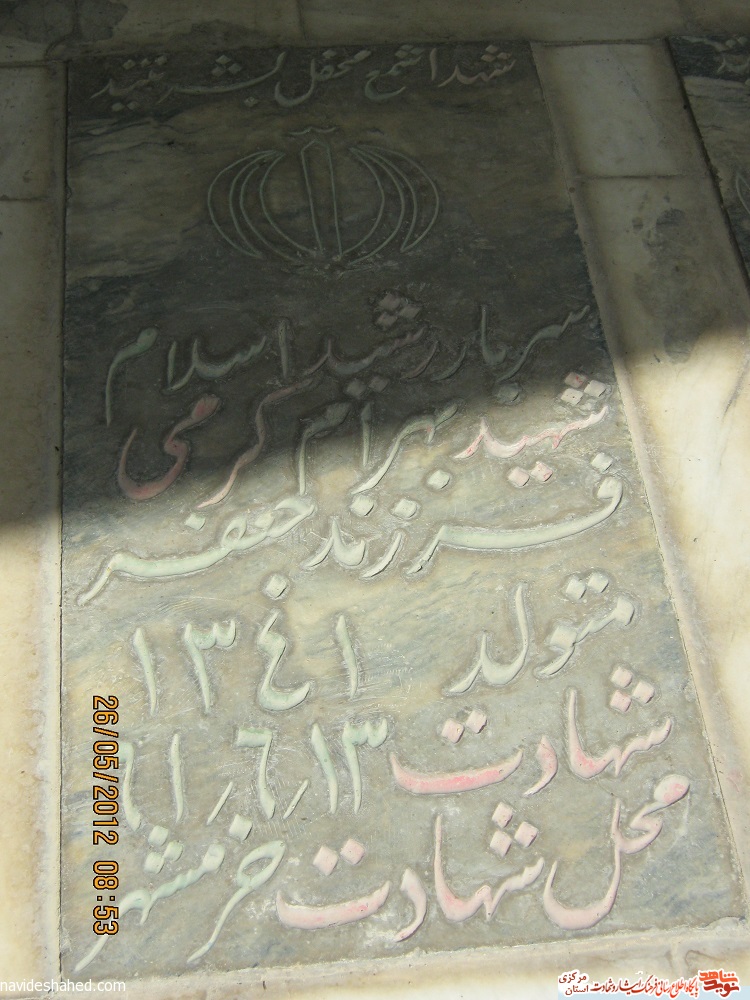 شهدا شمع محفل بشریتند
سرباز رشید اسلام
شهید بهرام کرمی
فرزند جعفر
متولد ۱۳٤۱
شهادت ۶۱٫۶٫۱۳
محل شهادت خرمشهر
26/05/2012 08:53
navideshahed.com
نوید شاهد پایگاه اطلاع رسانی فرهنگ ایثار و شهادت استان مرکزی